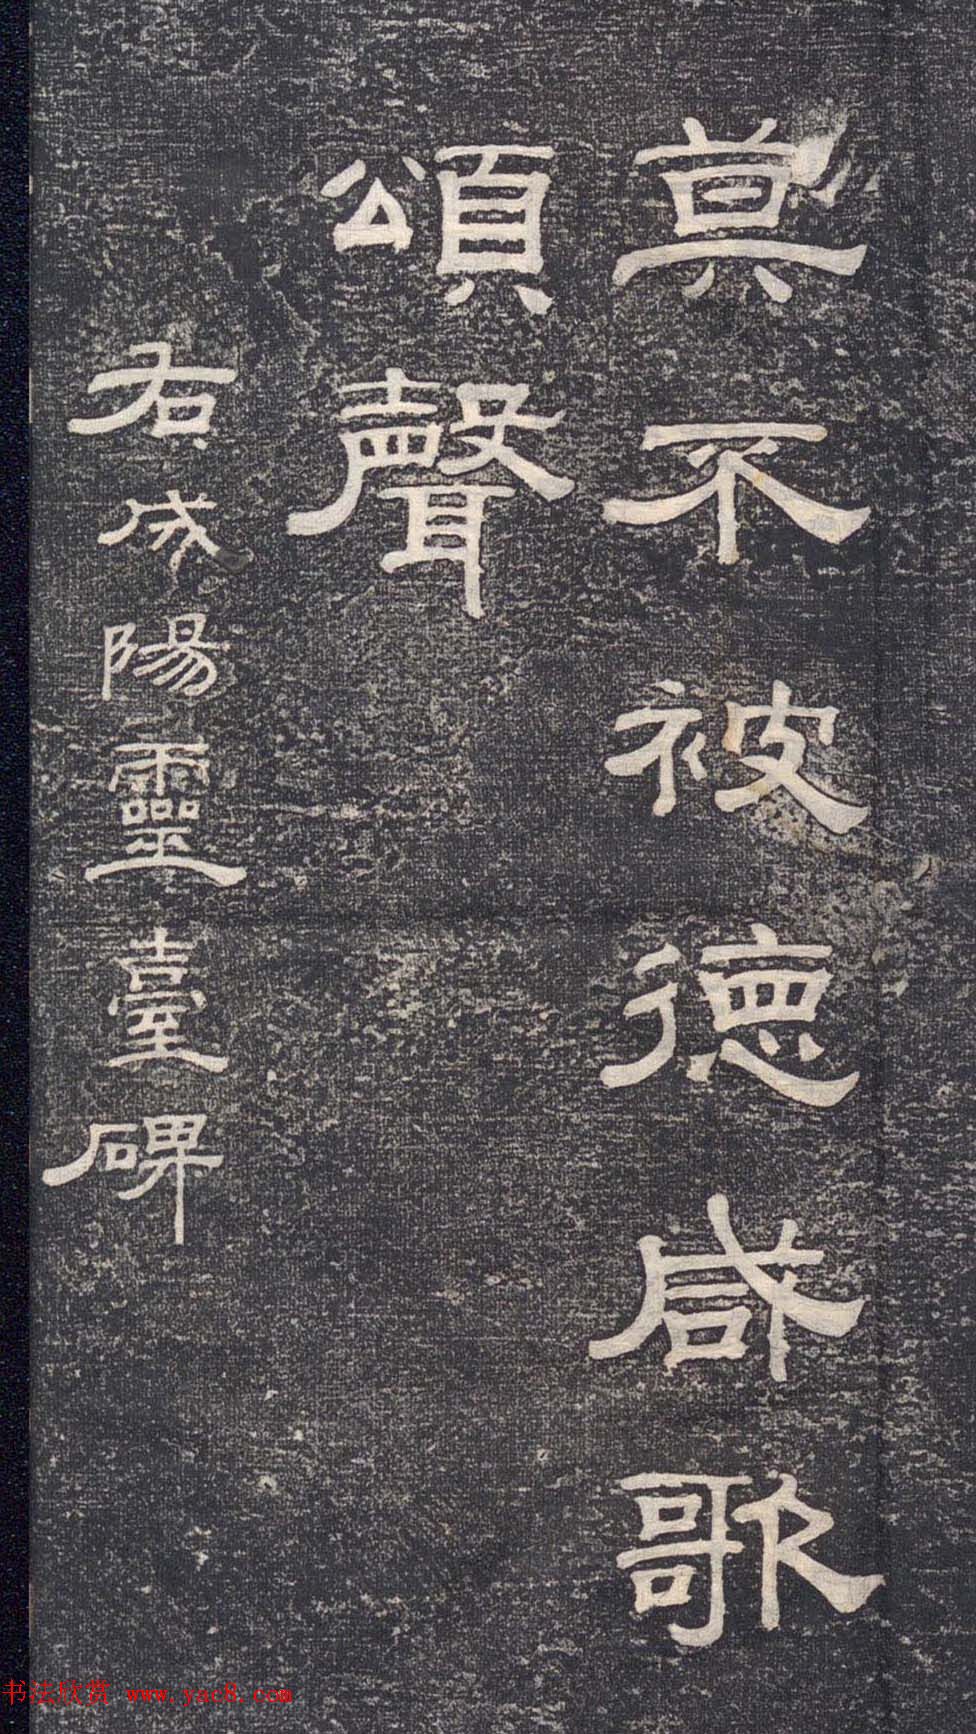 莫不被德咸歌
頌聲
右成陽靈臺碑
书法欣赏 www.yac8.com